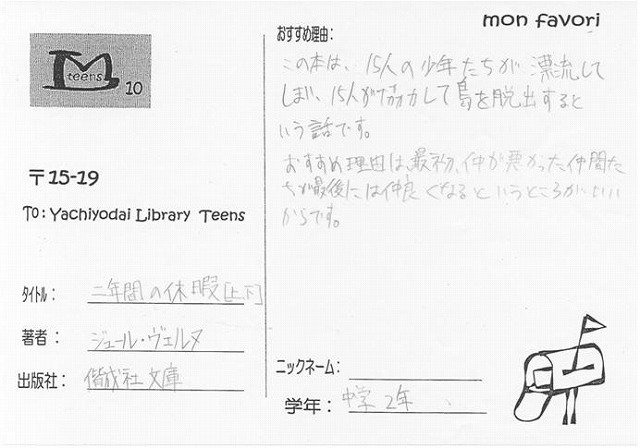 mon favori
M
teens
10
〒15-19
To: Yachiyodai Library Teens
タイトル: 二年間の休暇[上下]
著者: ジュール・ヴェルヌ
出版社: 偕成社文庫
おすすめ理由:
この本は、15人の少年たちが漂流して
しまい、15人が協力して島を脱出すると
いう話です。
おすすめ理由は、最初、仲が悪かった仲間た
ちが最後には仲良くなるというところがいい
からです。
ニックネーム:
学年: 中学2年